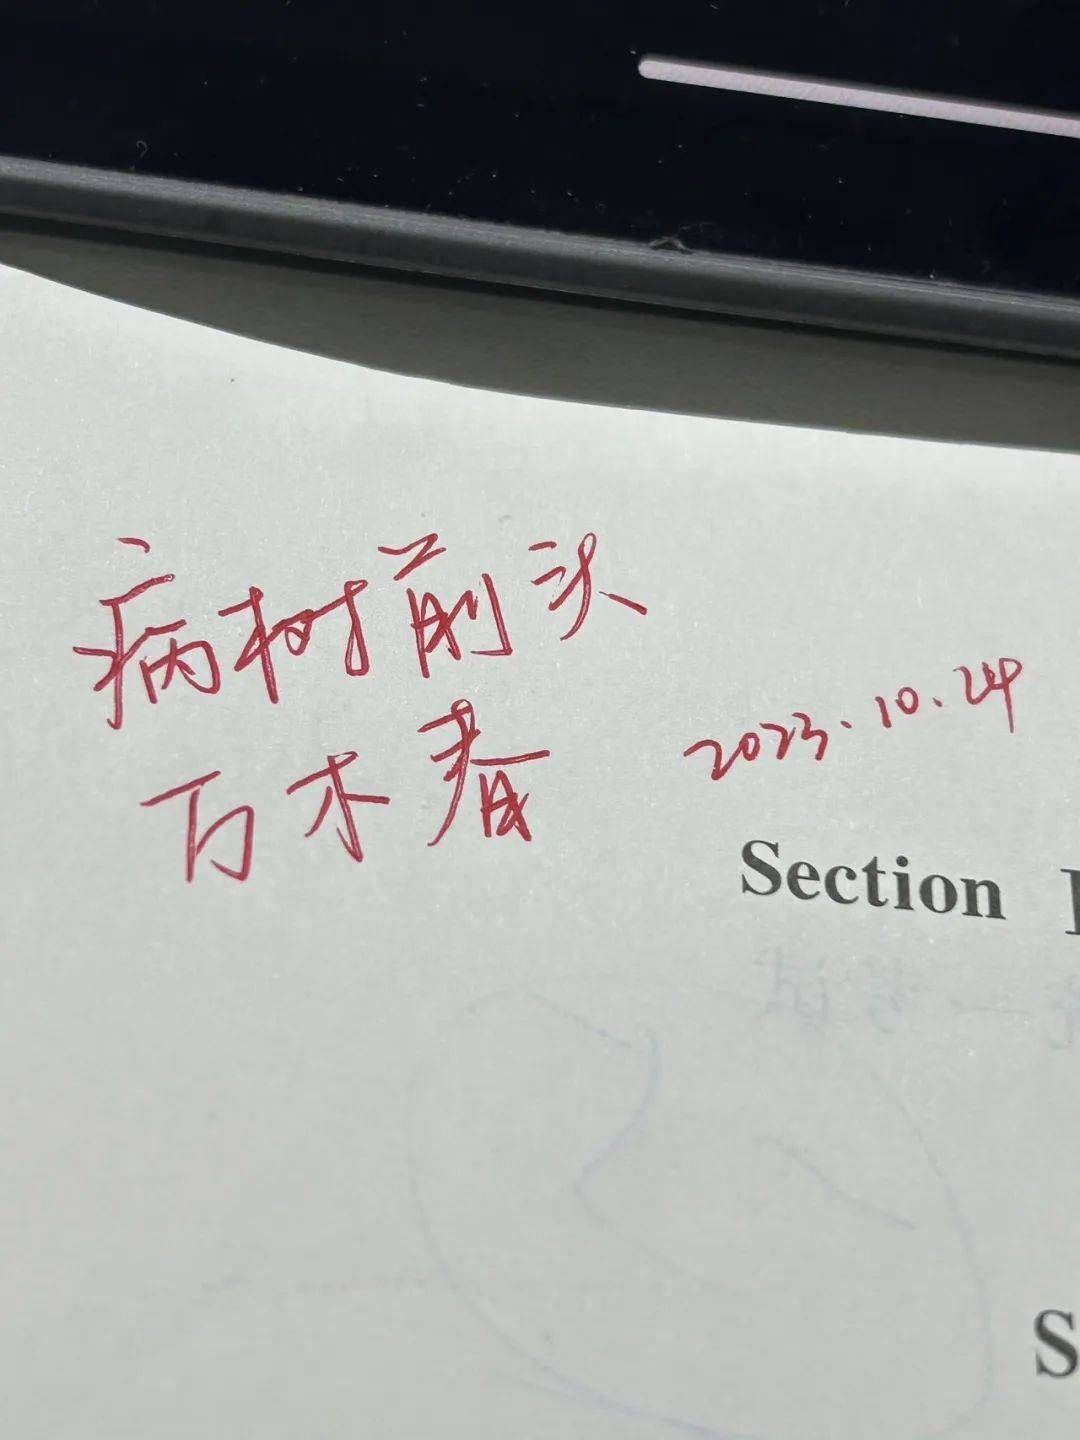 病树前头
万木春
2023.10.24
Section